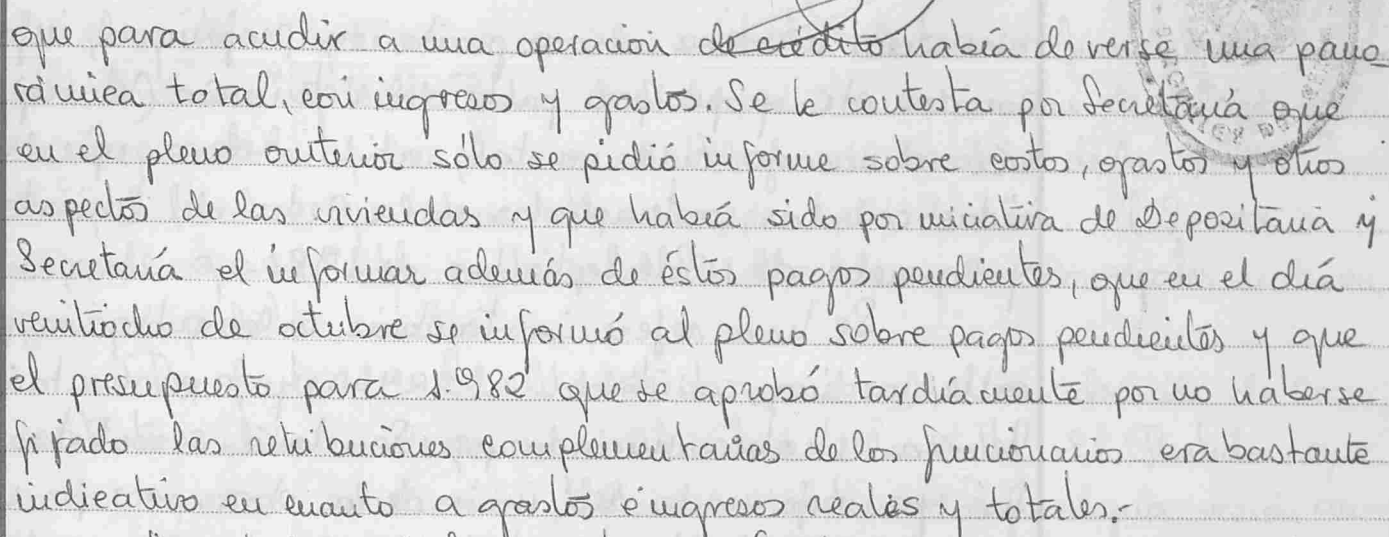 que para acudir a una operación de crédito había de verse una pano_
rámica total, con ingresos y gastos. Se le contesta por Secretaría que
en el pleno anterior sólo se pidió informe sobre costos, gastos y otros
aspectos de las viviendas y que había sido por iniciativa de Depositaría y
Secretaría el informar además de éstos pagos pendientes, que en el día
veintiocho de octubre se informó al pleno sobre pagos pendientes y que
el presupuesto para 1.982 que se aprobó tardíamente por no haberse
fijado las retribuciones complementarias de los funcionarios era bastante
indicativo en cuanto a gastos e ingresos reales y totales.-